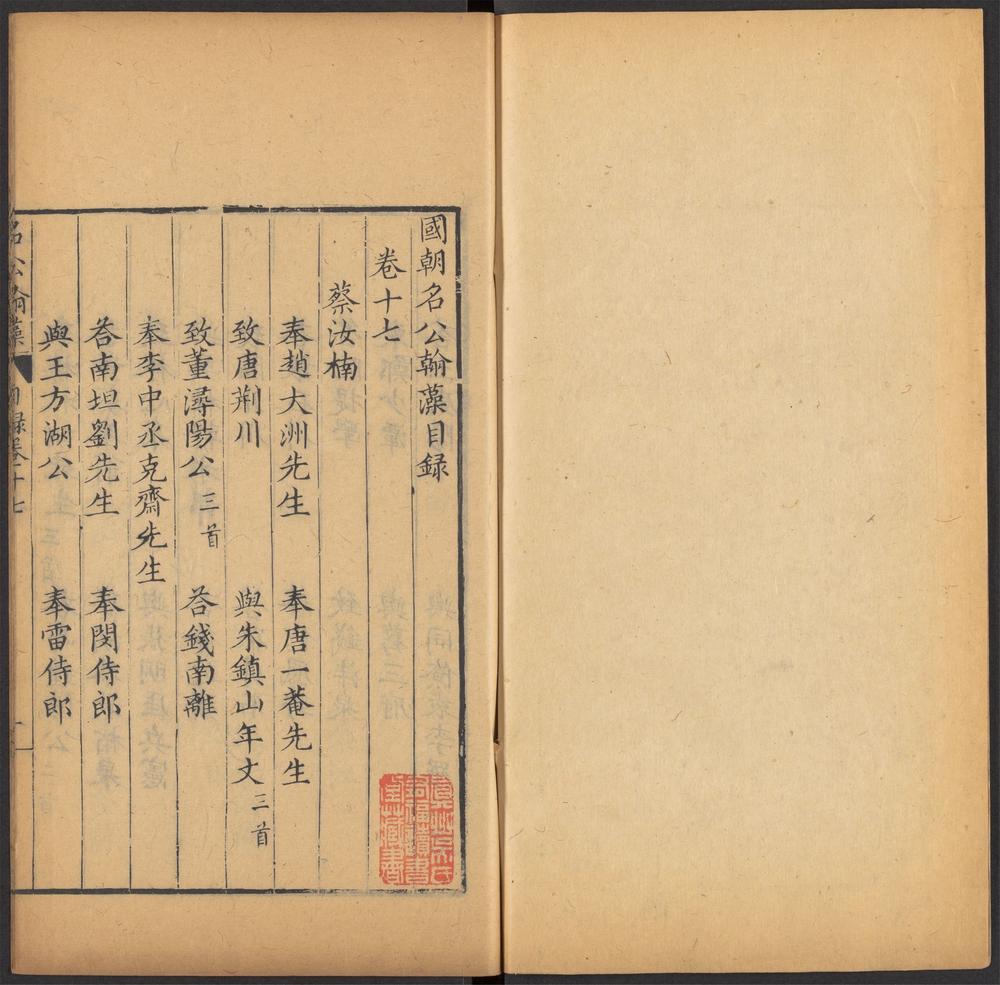 國朝名公翰藻目録
卷十七
蔡汝楠
奉趙大洲先生 奉唐一菴先生
致唐荆川 與朱鎮山年丈三首
致董潯陽公三首 荅錢南離
奉李中丞克齋先生
荅南坦劉先生 奉閔侍郎
與王方湖公 奉雷侍郎
名公翰藻 目録卷十七
真州吳氏
有福讀書
堂藏書